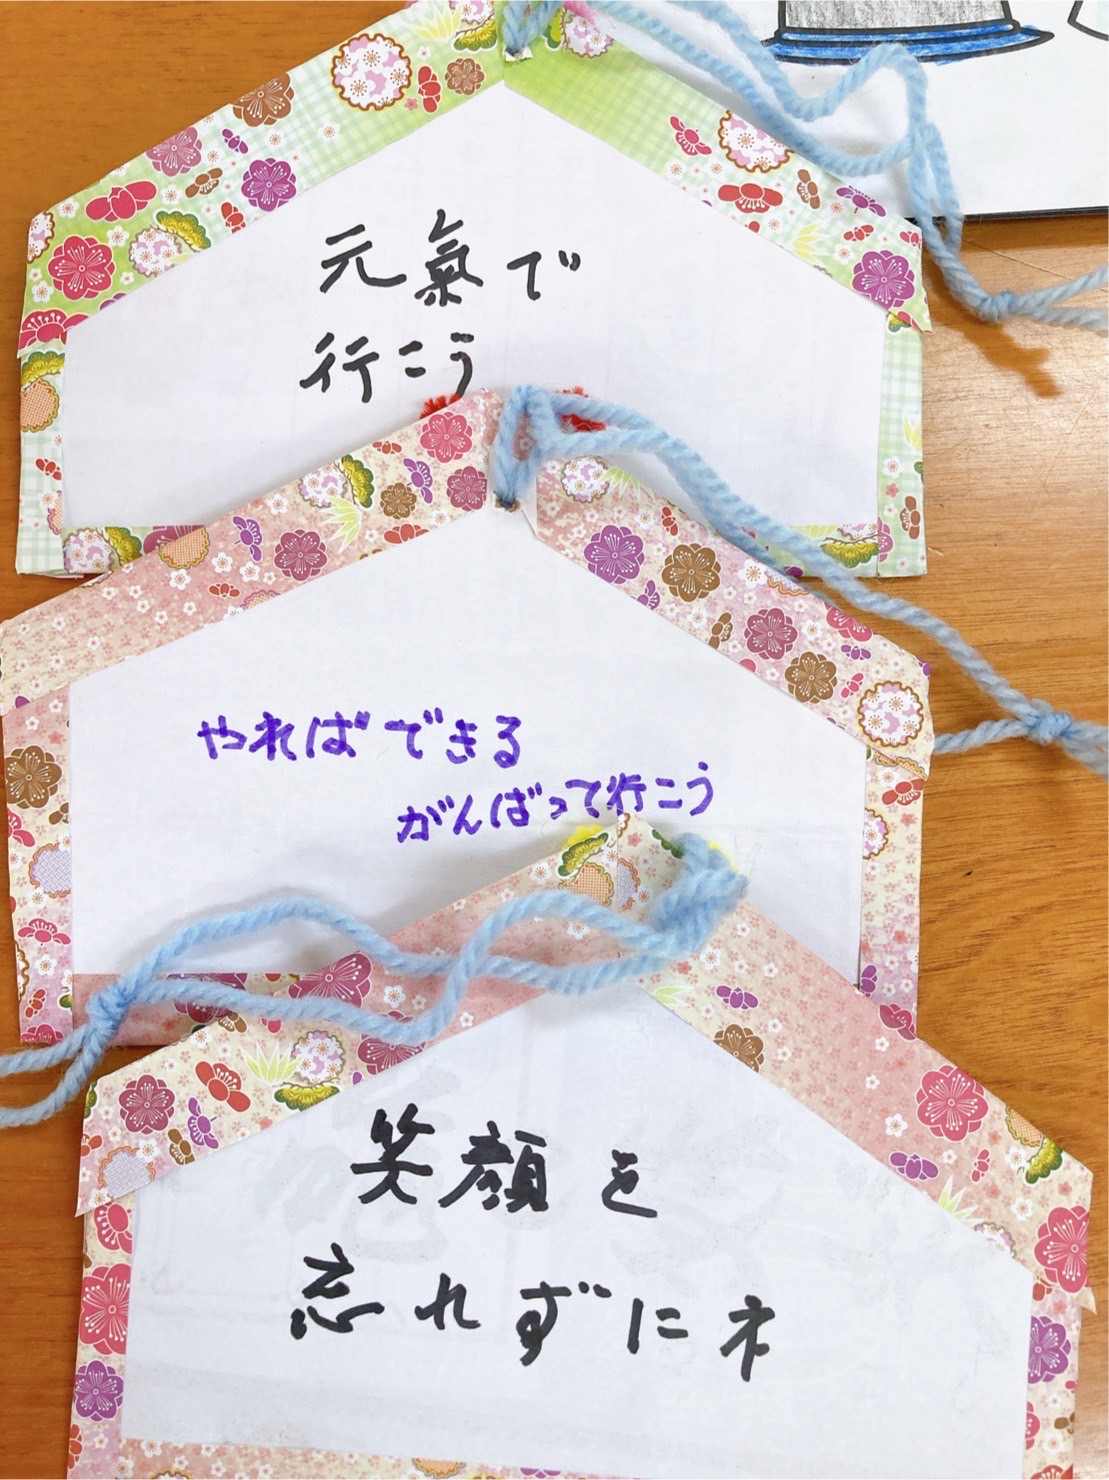 元氣で
行こう
やればできる
がんばって行こう
笑顔を
忘れずにネ